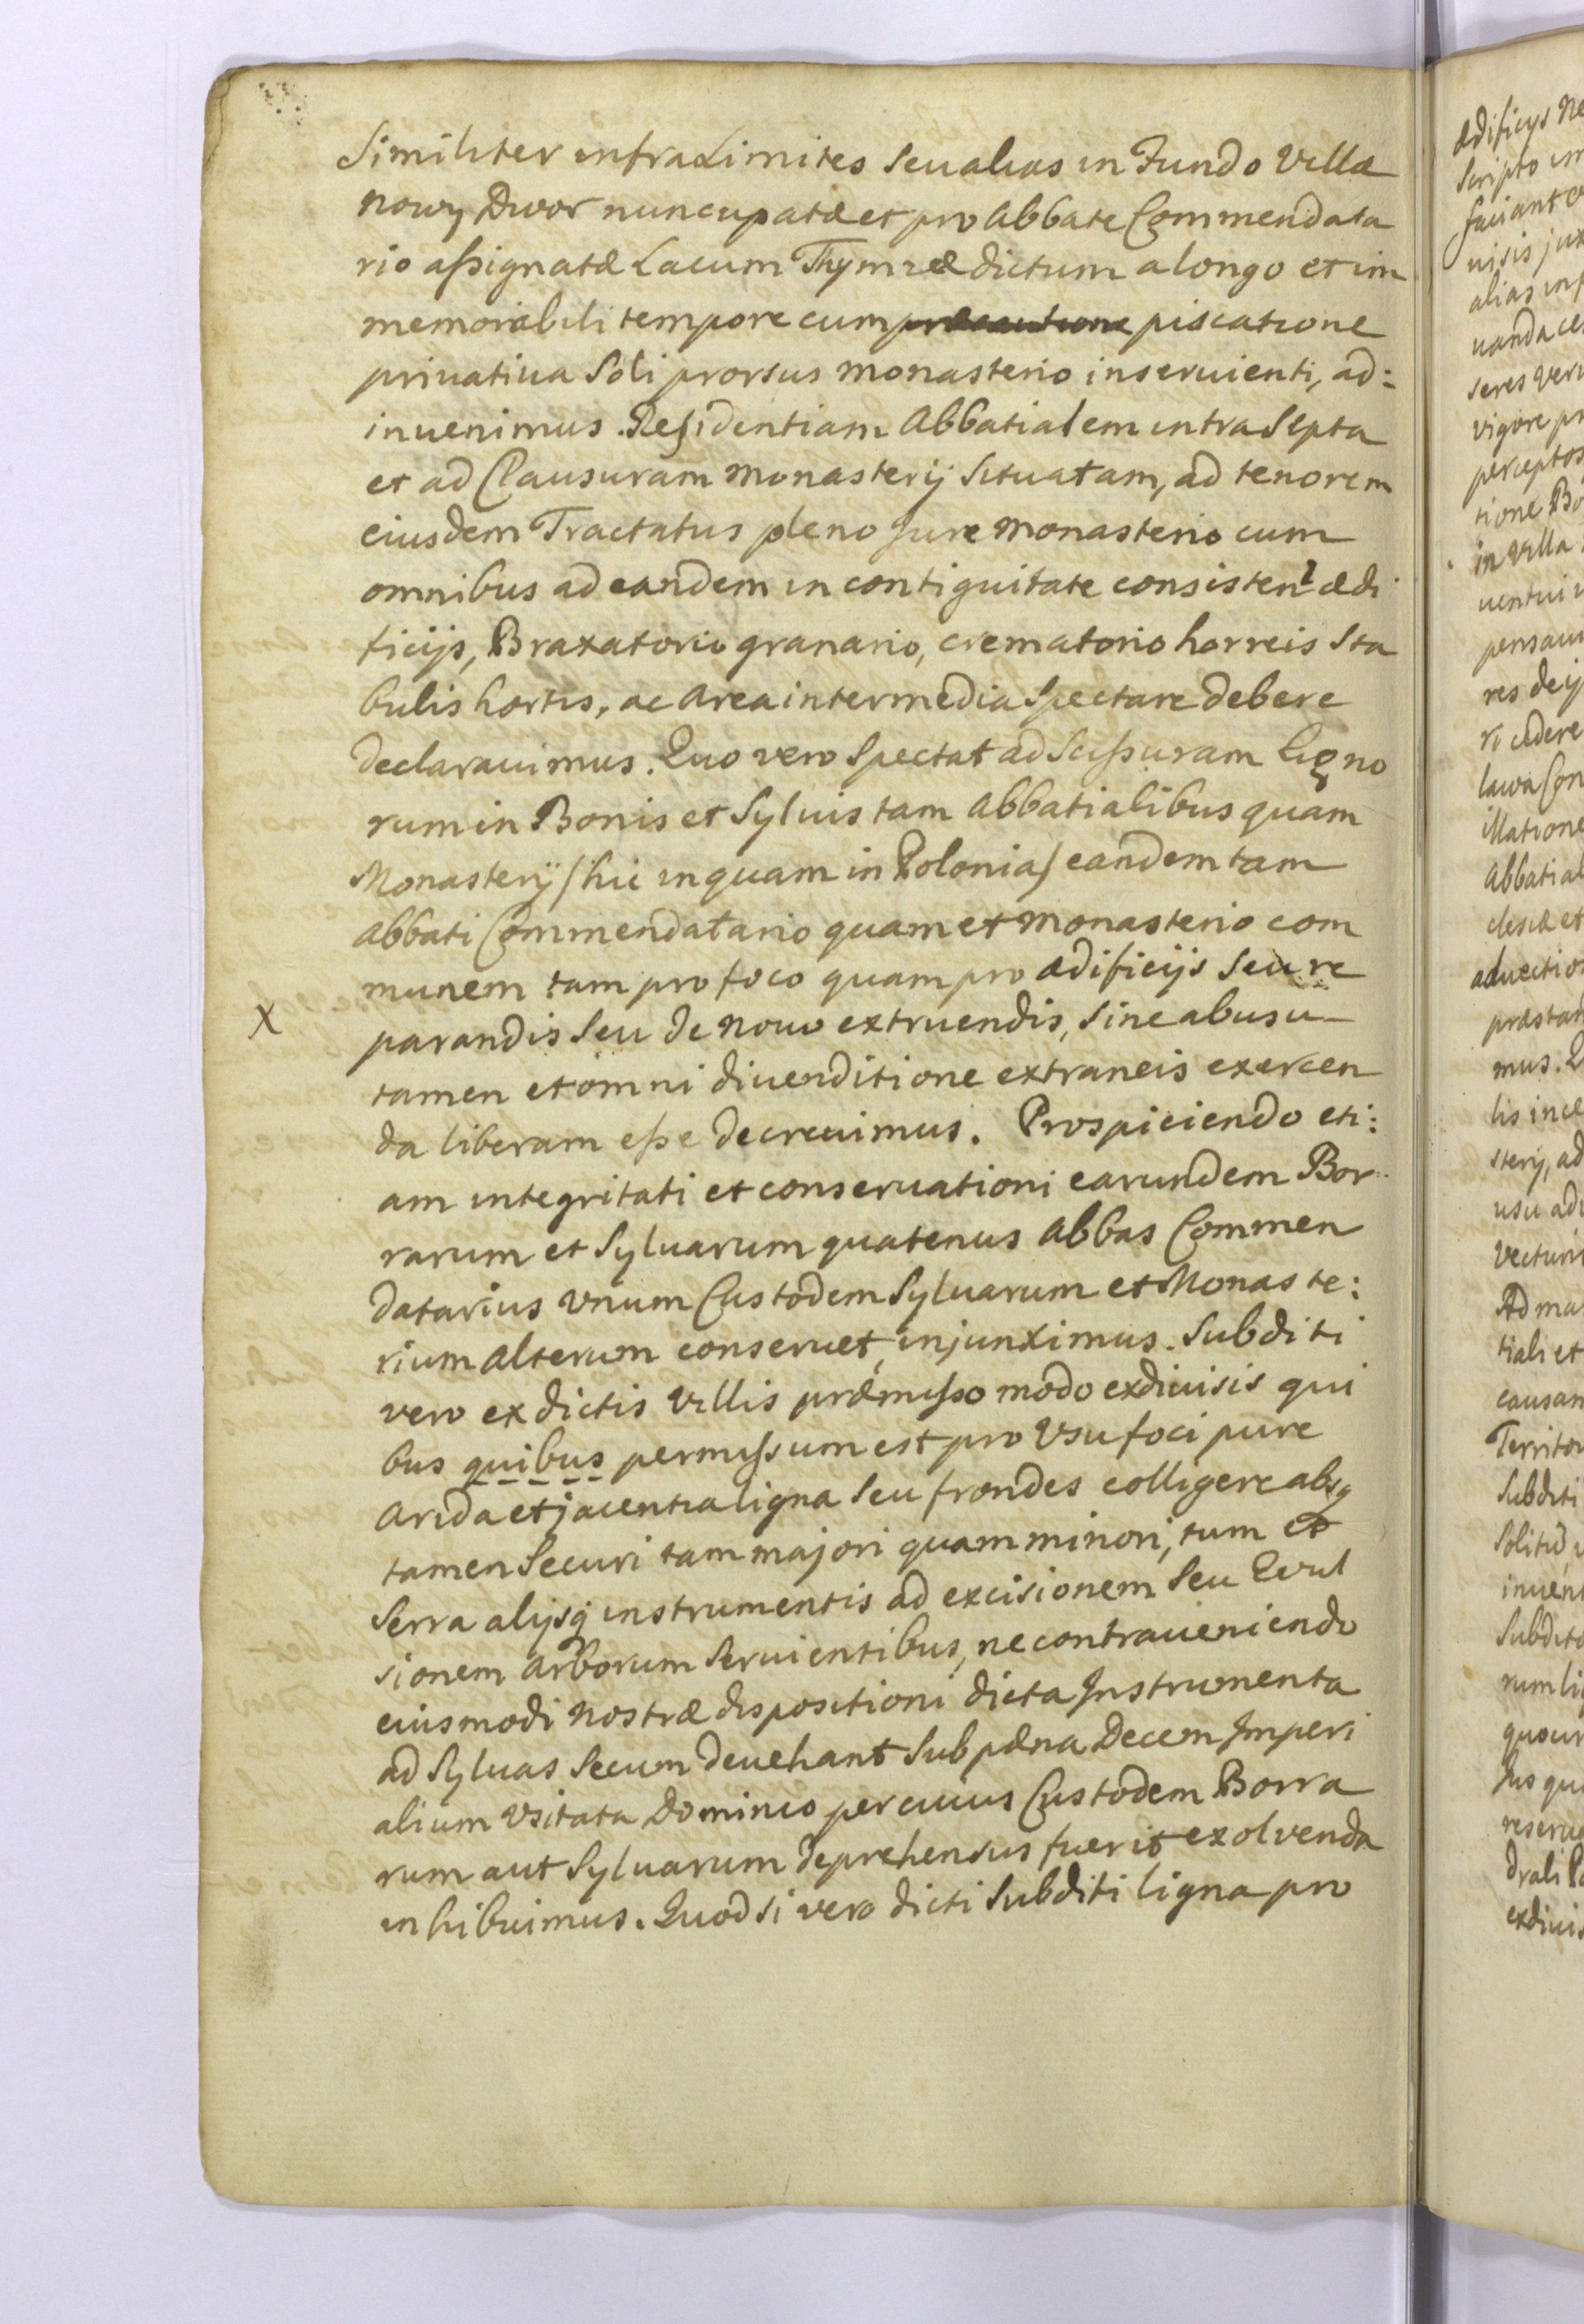 Similiter infra Limites seu alias in Fundo Villæ
Nowy Dwor nuncupatæ et pro Abbate Commendata
rio assignatæ Lacum Thymræ dictum a longo et im
memorabili tempore cum præcautione piscatione
privativa Soli prorsus Monasterio inservienti, ad:
invenimus. Residentiam Abbatialem intra Septa
et ad Clausuram Monasterij Situatam, ad tenorem
eiusdem Tractatus pleno Jure Monasterio cum
omnibus ad eandem in contiguitate consisten: ædi
ficijs, Braxatorio granario, crematorio horreis Sta
bulis hortis, ac Area intermedia Spectare debere
Declaravimus. Quo vero Spectat ad Scissuram Ligno
rum in Bonis et Sylvis tam Abbatialibus quam
Monasterij /hic inquam in Polonia/ eandem tam
Abbati Commendatario quam et Monasterio com
munem tam pro foco quam pro ædificijs Seu re
X parandis Seu de Novo extruendis, Sine abusu
tamen et omni divenditione extraneis exercen
da liberam esse decrevimus. Prospiciendo eti:
am integritati et conservationi earundem Bor
rarum et Sylvarum quatenus Abbas Commen
datarius Vnum Custodem Sylvarum et Monaste:
rium Alterum conservet, injunximus. Subditi
vero ex dictis Villis præmisso modo exdivisis qui
bus quibus permissum est pro Vsu foci pure
Arida et jacentia ligna Seu frondes colligere absq
tamen Securi tam majori quam minori, tum et
Serra alijsq instrumentis ad excisionem Seu Evul
sionem Arborum Servientibus, ne contraveniendo
eiusmodi Nostræ dispositioni dicta Instrumenta
ad Sylvas Secum devehant Sub pæna Decem Imperi
alium Vsitata Dominio per cuius Custodem Borra
rum aut Sylvarum deprehensus fuerit exolvenda
inhibuimus. Quod si vero dicti Subditi ligna pro